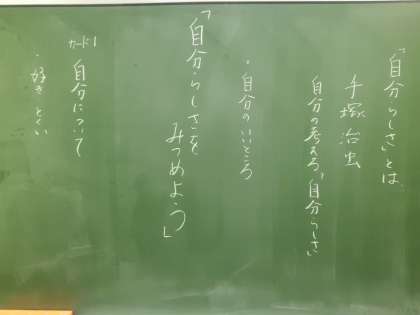 「自分らしさ」とは
手塚治虫
自分の考える、自分らしさ
・自分のいいところ
「自分らしさを
みつめよう」
カード1
自分について
・好き とくい